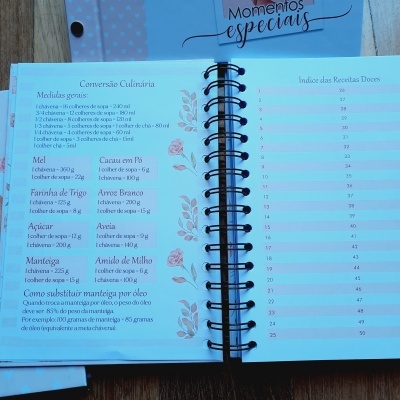 Momentos
especiais
Conversão Culinária
Medidas gerais:
1 chávena = 16 colheres de sopa = 240 ml
3/4 chávena = 12 colheres de sopa = 180 ml
1/2 chávena = 8 colheres de sopa = 120 ml
1/3 chávena = 5 colheres de sopa + 1 colher de chá = 80 ml
1/4 chávena = 4 colheres de sopa = 60 ml
1 colher de sopa = 3 colheres de chá = 15ml
1 colher chá = 5ml
Mel
1 chávena = 360 g
1 colher sopa = 22g
Cacau em Pó
1 colher de sopa = 6 g
1 chávena = 100 g
Farinha de Trigo
1 chávena = 175 g
1 colher de sopa = 8 g
Arroz Branco
1 chávena = 200 g
1 colher de sopa = 15 g
Açúcar
1 colher de sopa = 12 g
1 chávena = 200 g
Aveia
1 colher de sopa = 9 g
1 chávena = 140 g
Manteiga
1 chávena = 225 g
1 colher de sopa = 15 g
Amido de Milho
1 colher de sopa = 6 g
1 chávena = 100 g
Como substituir manteiga por óleo
Quando troca a manteiga por óleo, o peso do óleo
deve ser 85% do peso da manteiga.
Por exemplo: 100 gramas de manteiga = 85 gramas
de óleo (equivalente a meia chávena)
Índice das Receitas Doces
1 26
2 27
3 28
4 29
5 30
6 31
7 32
8 33
9 34
10 35
11 36
12 37
13 38
14 39
15 40
16 41
17 42
18 43
19 44
20 45
21 46
22 47
23 48
24 49
25 50